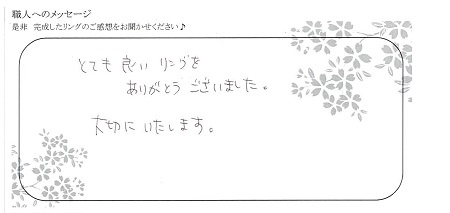 職人へのメッセージ
是非 完成したリングのご感想をお聞かせください♪
とても良い リングを
ありがとう ございました。
大切に いたします。